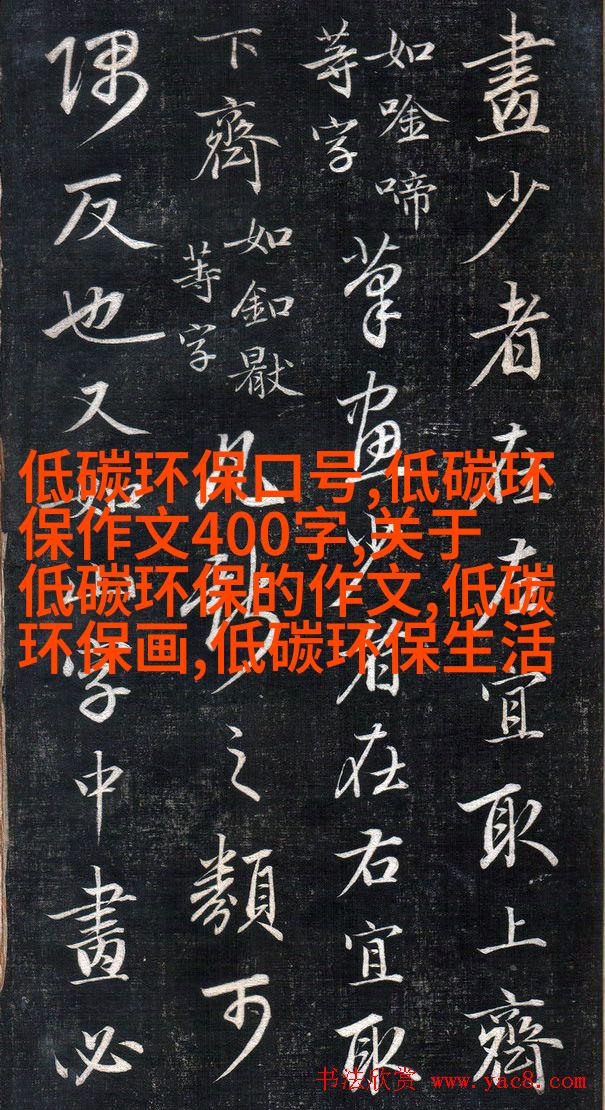 畫少者在左宜取上齊
如唫啼
等字
筆畫少者在右宜取
下齊
如釦
等字
之類可
隅反也又如字中畫必
低碳环保口号,低碳环
保作文400字,关于
低碳环保的作文,低碳
环保画,低碳环保生活
书法欣赏 www.yac8.com